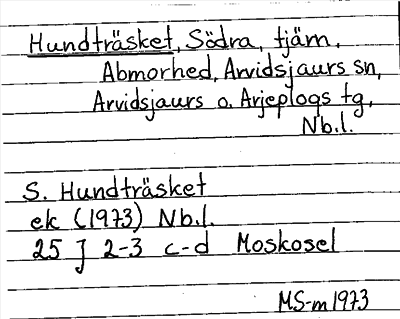 Hundträsket, Södra, tjärn.
Abmorhed, Arvidsjaurs sn,
Arvidsjaurs o. Arjeplogs tg,
Nb.l.
S. Hundträsket
ek (1973) Nb.l.
25 J 2-3 c-d Moskosel
MS-m 1973